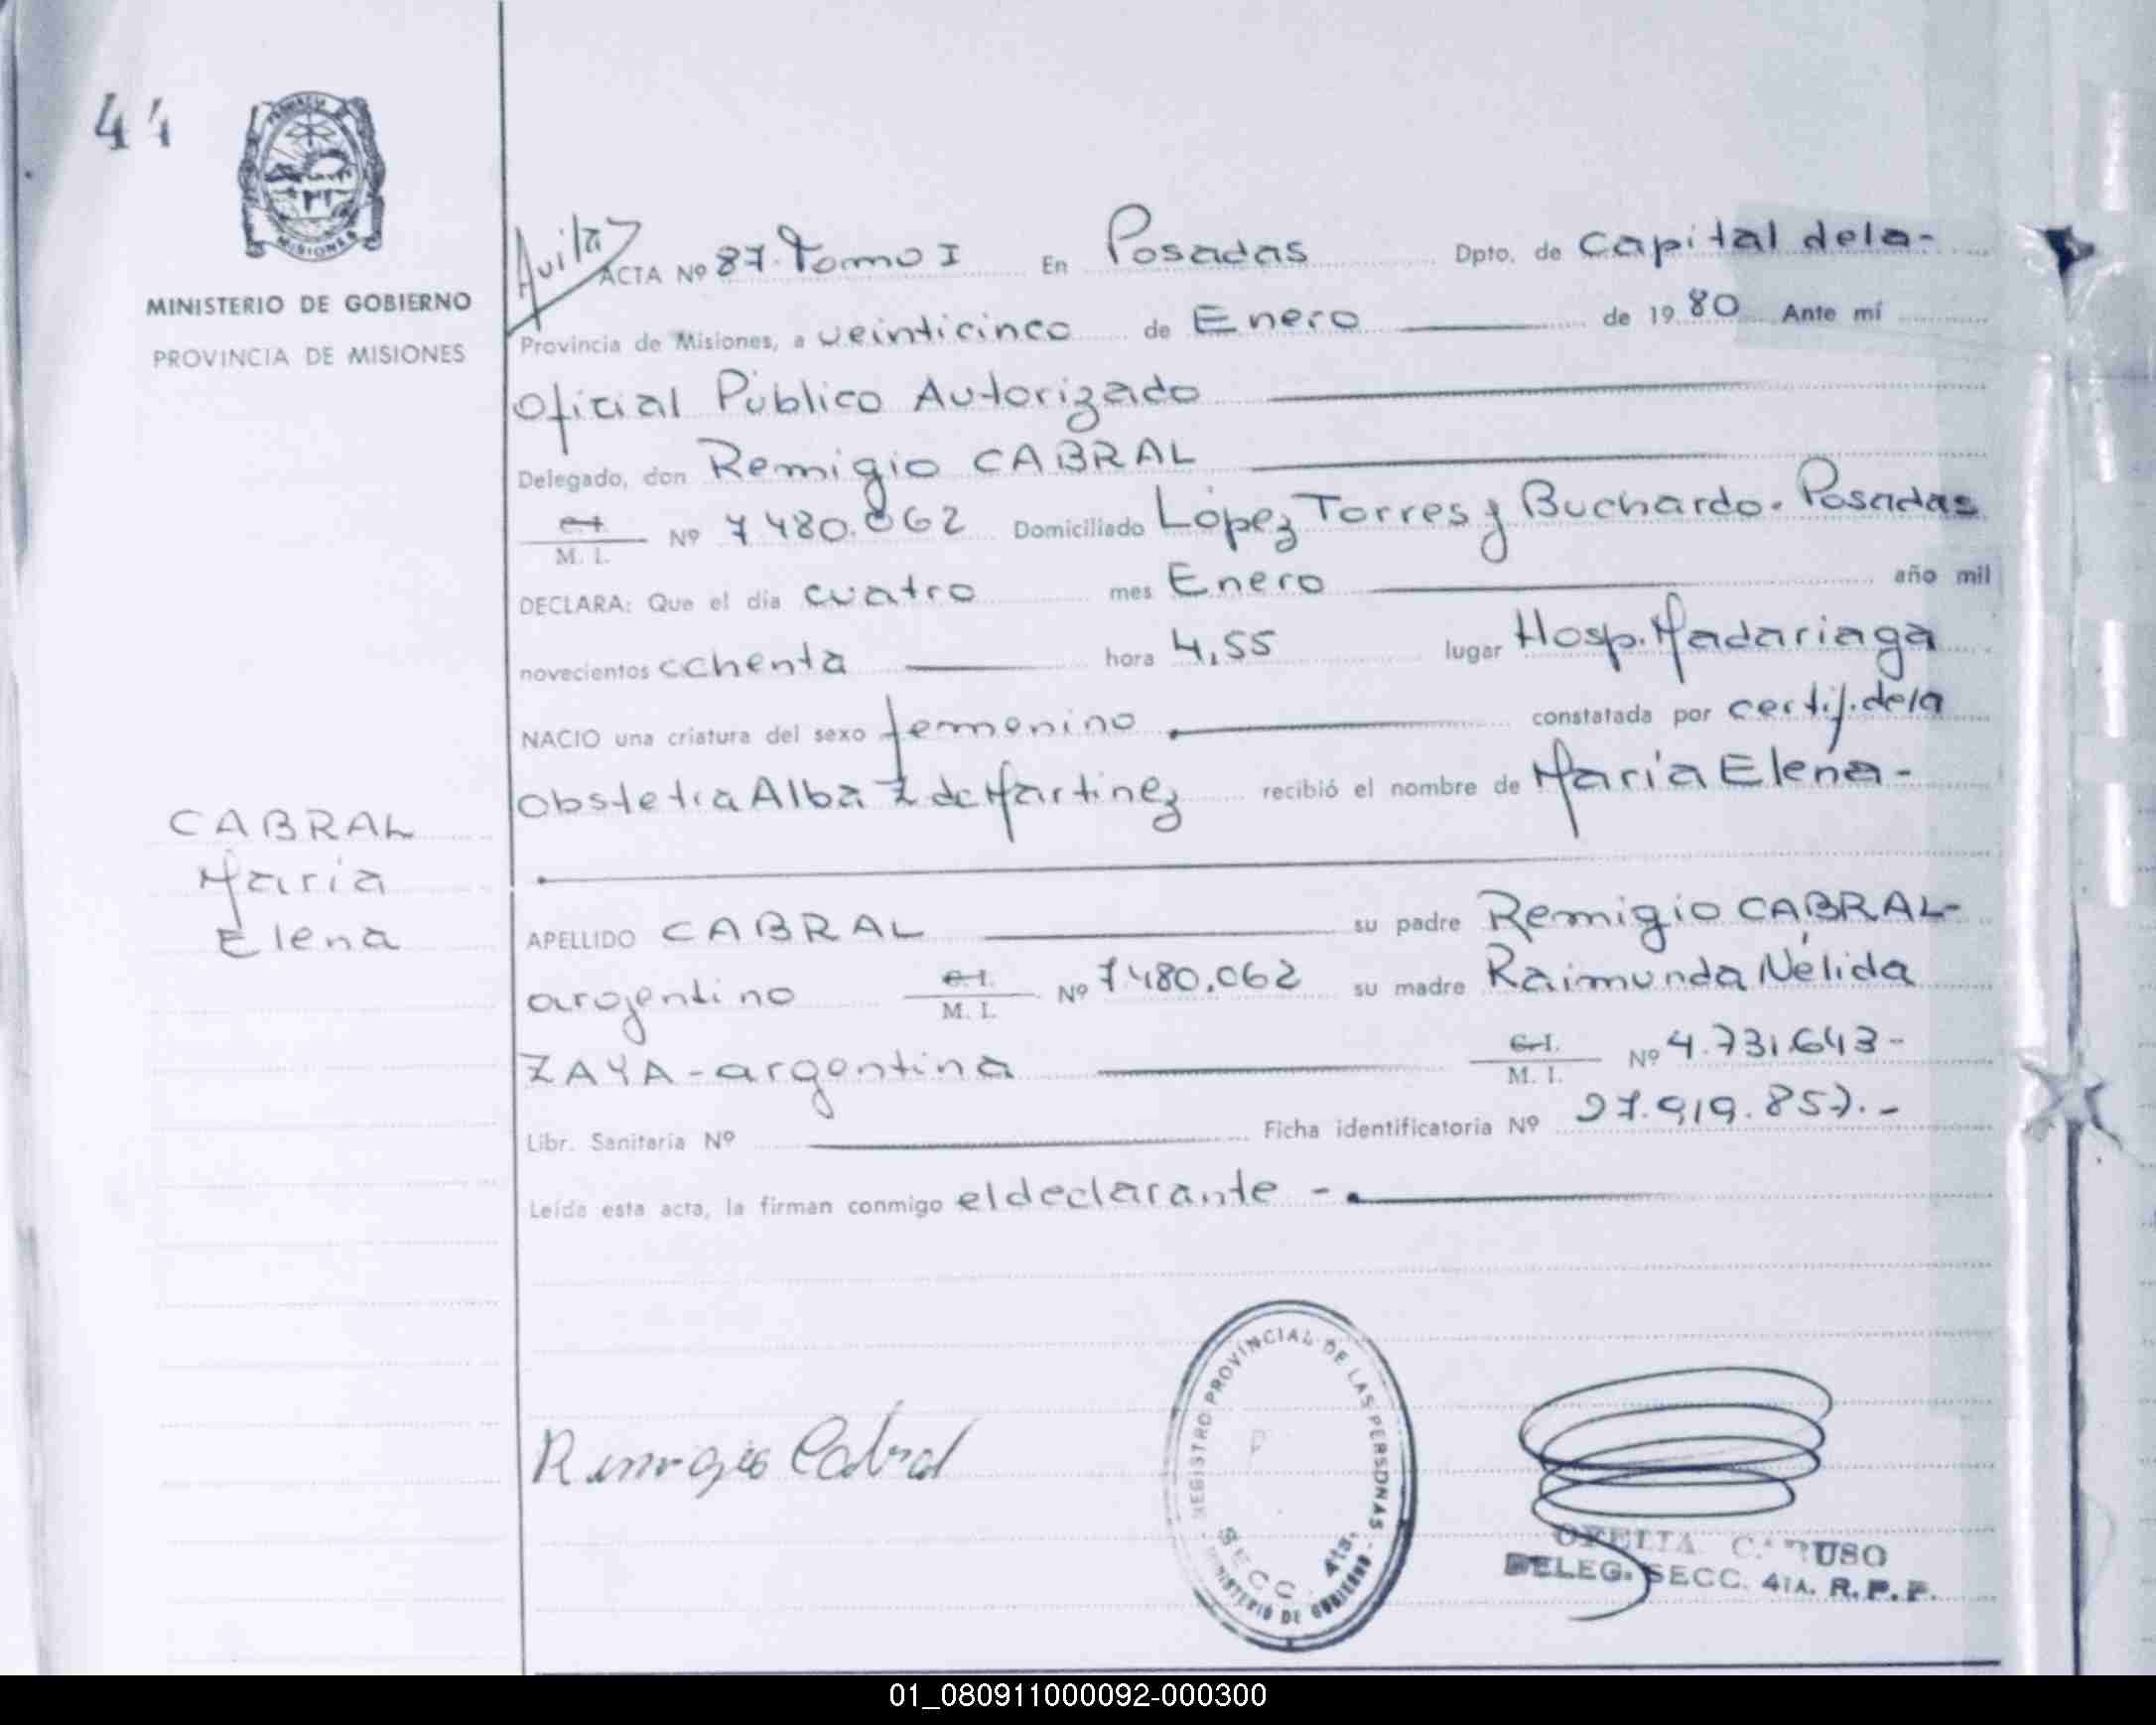 44
MINISTERIO DE GOBIERNO
PROVINCIA DE MISIONES
MISIONES
Avila
ACTA Nº 87. Tomo I En Posadas Dpto. de Capital dela-
Provincia de Misiones, a veinticinco de Enero de 1980 Ante mí
Oficial Público Autorizado
Delegado, don Remigio CABRAL
C.I. M. I. Nº 7480.062 Domiciliado López Torres y Buchardo. Posadas
DECLARA: Que el día cuatro mes Enero año mil
novecientos cchenta hora 4,55 lugar Hosp. Madariaga
NACIO una criatura del sexo femenino constatada por certif. dela
Obstetra Alba Z de Martinez recibió el nombre de María Elena-
CABRAL
María
Elena
APELLIDO CABRAL su padre Remigio CABRAL-
argentino C.I. M. I. Nº 7480.062 su madre Raimunda Nélida
ZAYA-argentina C.I. M. I. Nº 4.731.643-
Libr. Sanitaria Nº Ficha identificatoria Nº 27.919.857.-
Leída esta acta, la firman conmigo el declarante -
Remigio Cabral
REGISTRO PROVINCIAL DE LAS PERSONAS
SECC. 4ta.
MINISTERIO DE GOBIERNO
OFELIA CARUSO
DELEG. SECC. 4TA. R.P.P.
01_080911000092-000300